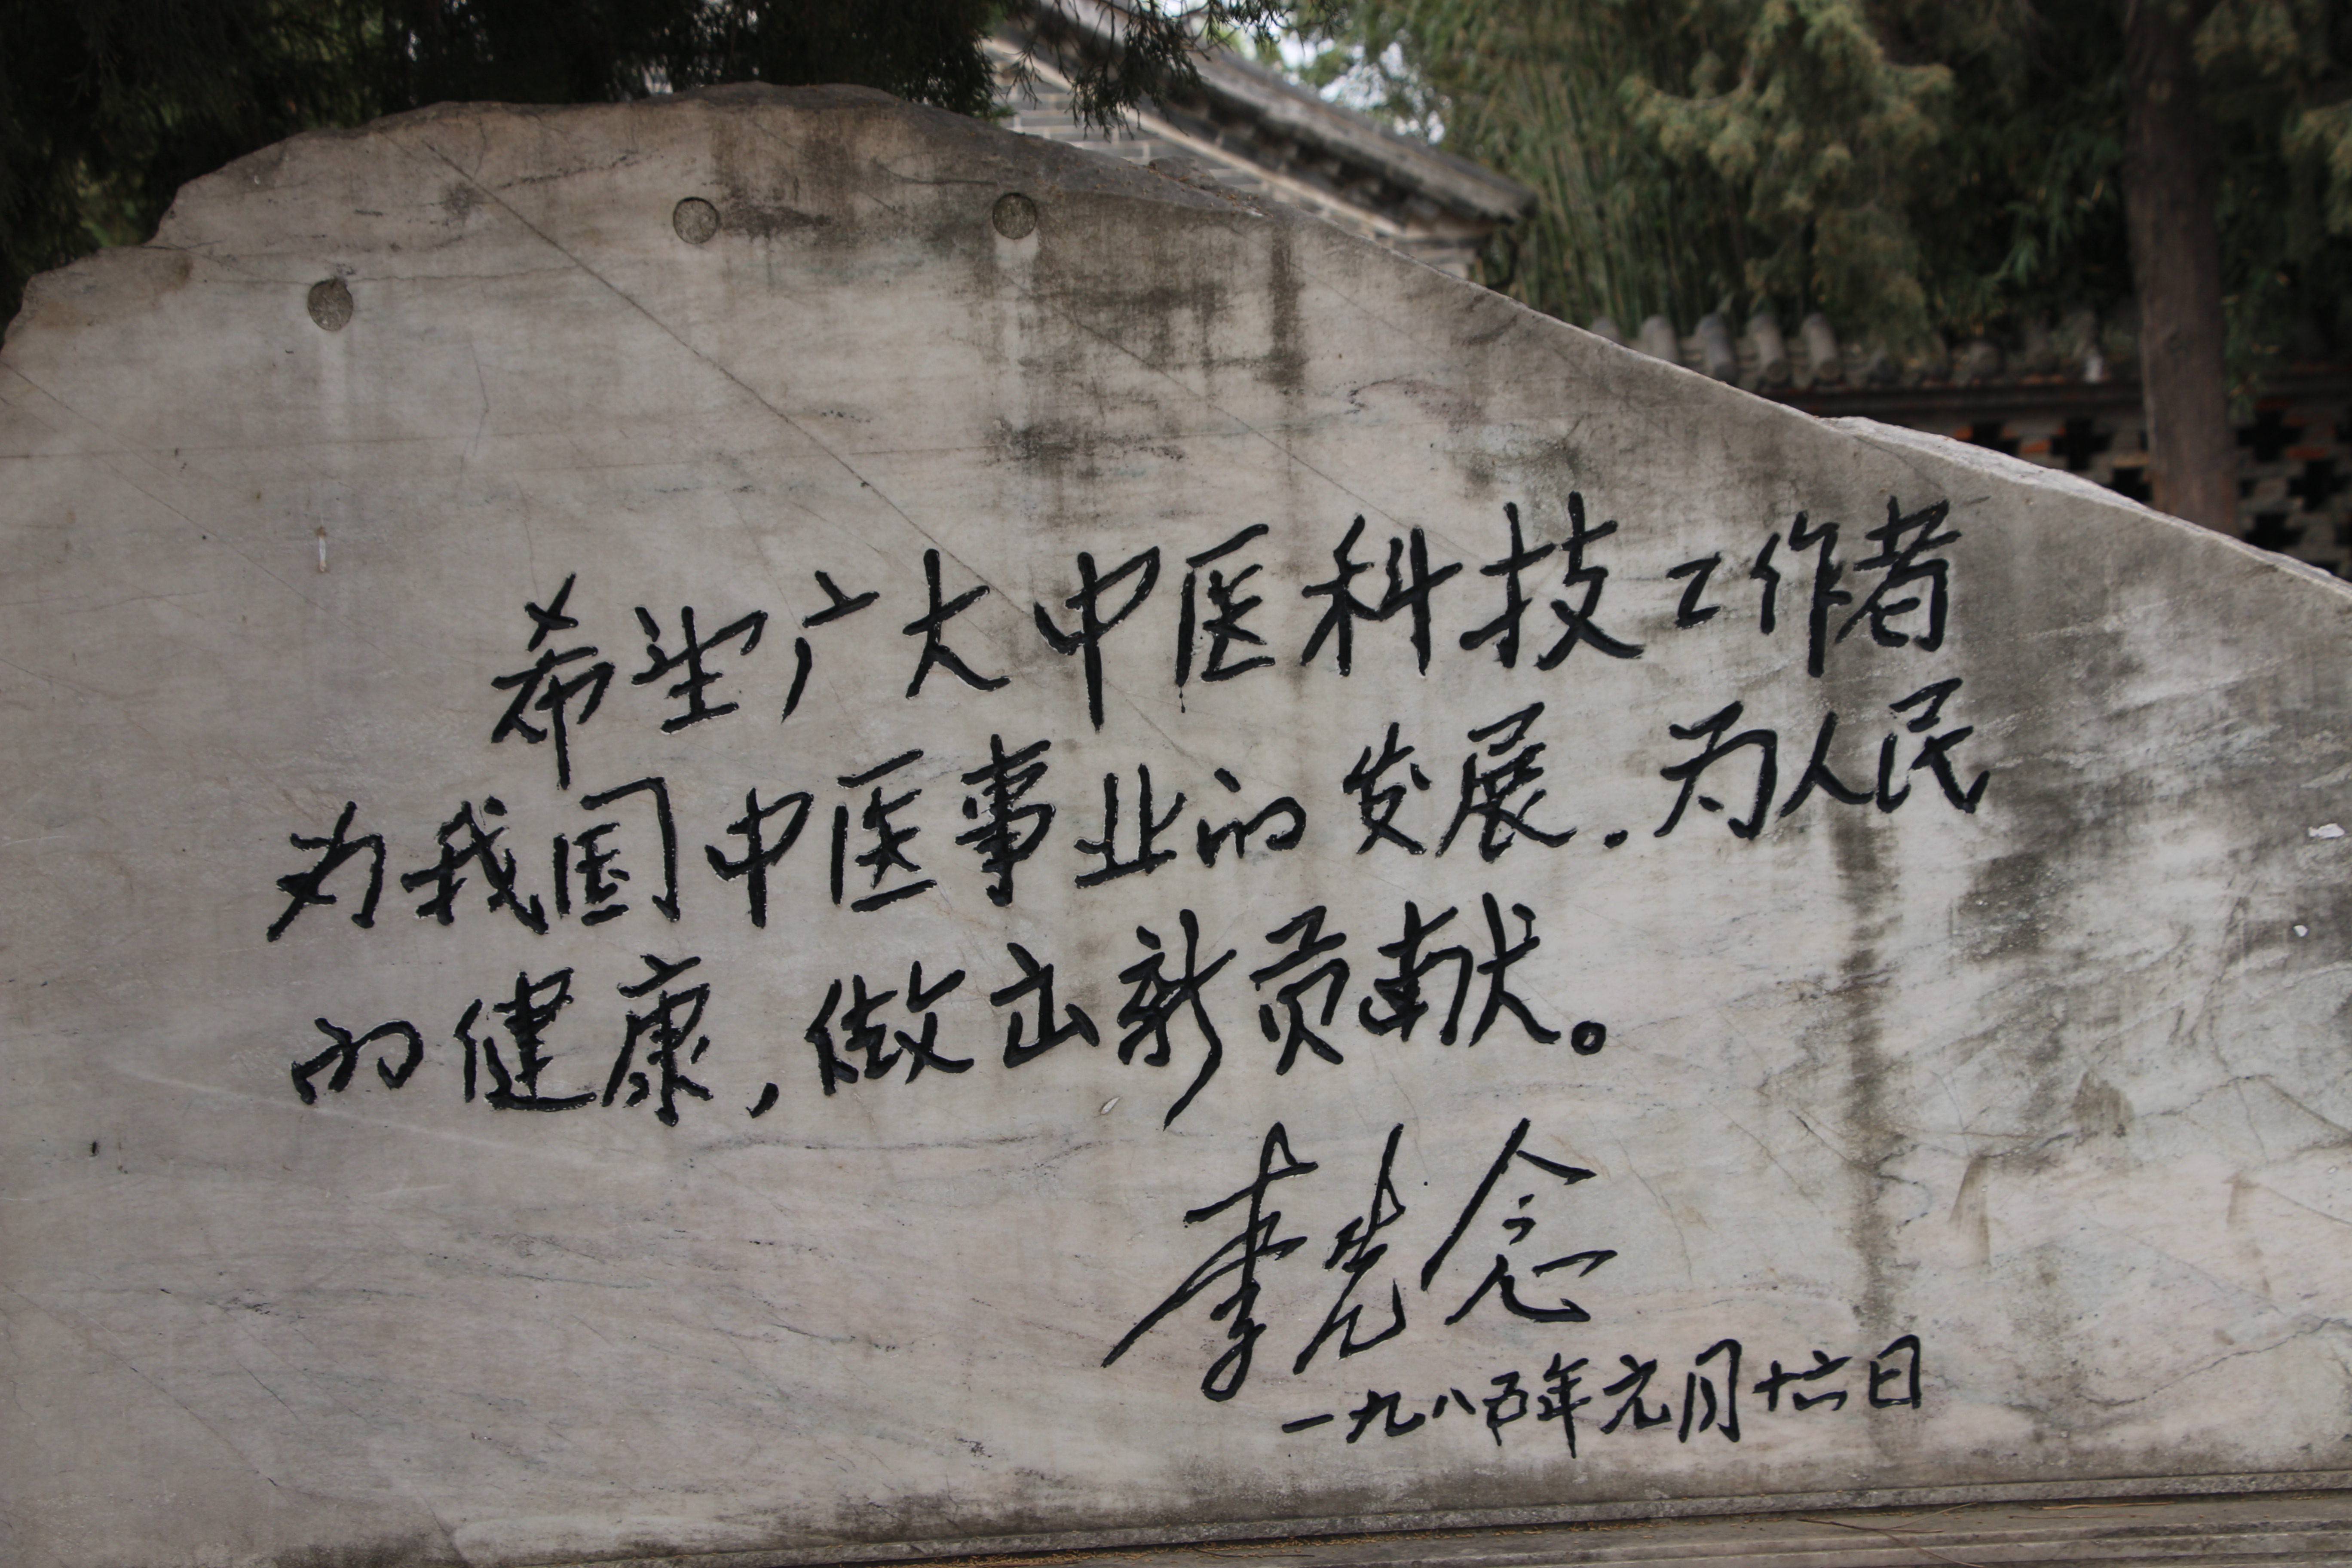 希望广大中医科技工作者
为我国中医事业的发展.为人民
的健康,做出新贡献。
李先念
一九八五年元月十六日